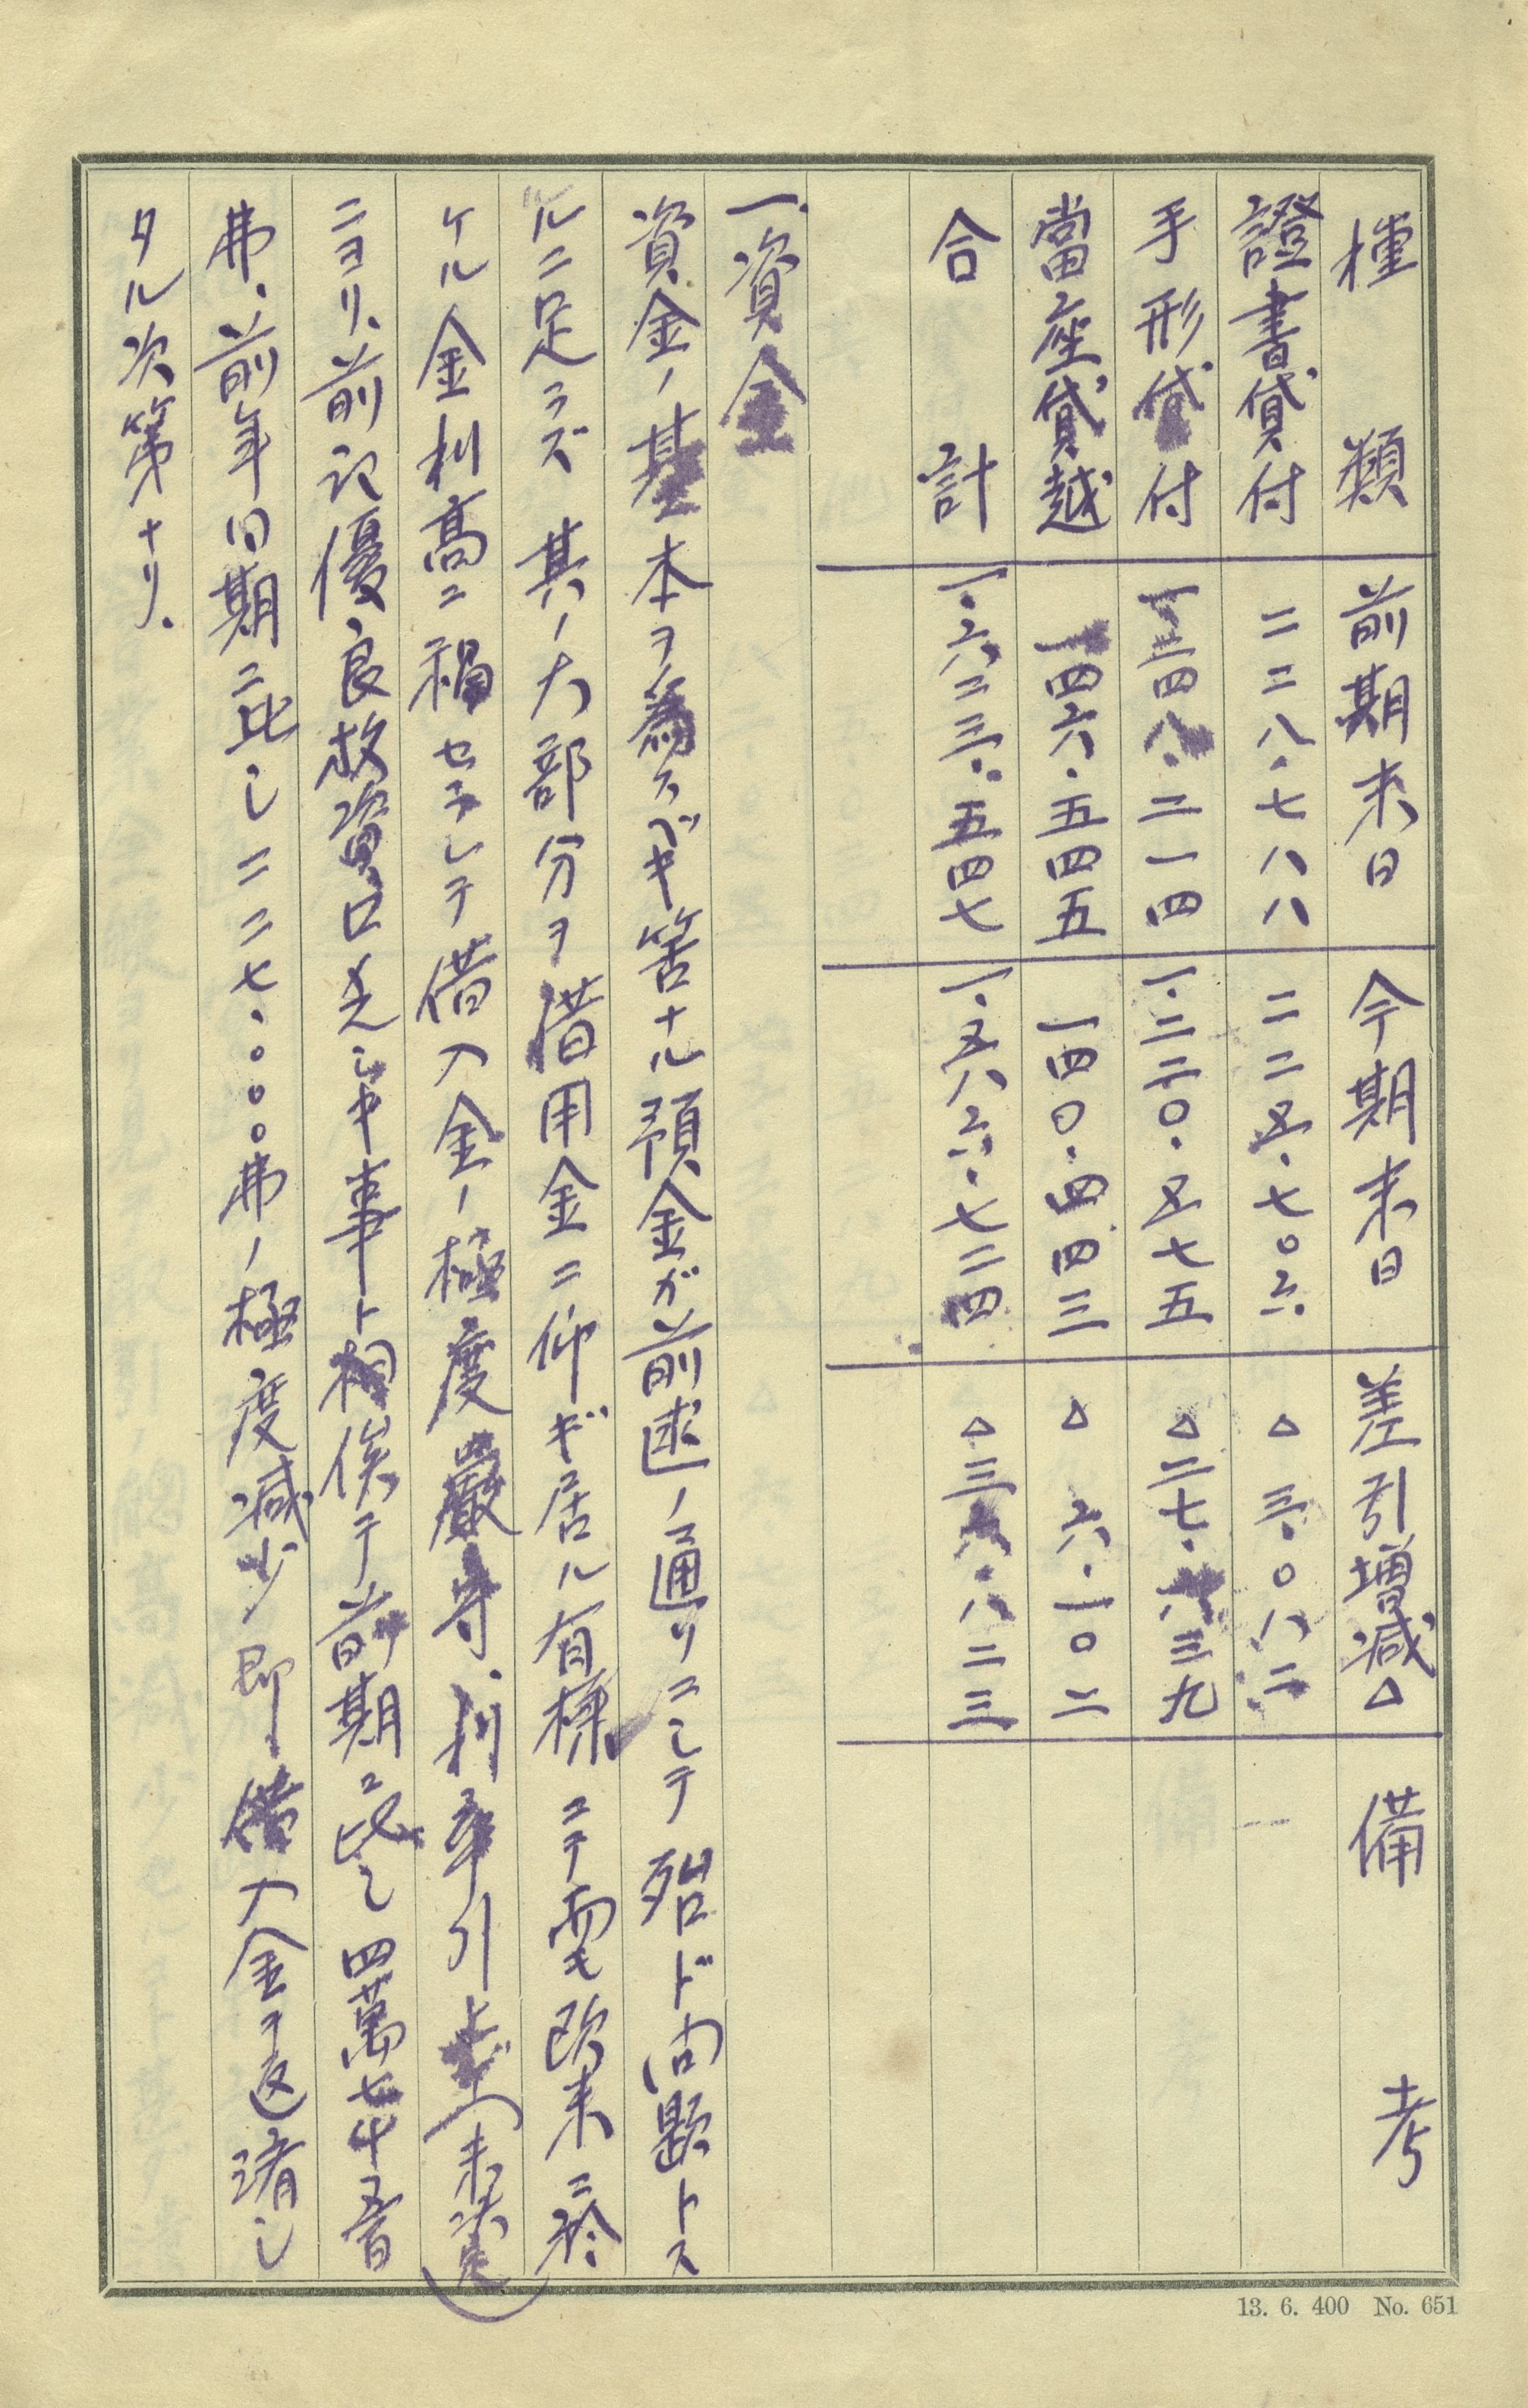 種類 前期末日 今期末日 差引増減△ 備考
證書貸付 二二八.七八八 二二五.七〇六 △三.〇八二
手形貸付 一二四八.二一四 一.二二〇.五七五 △二七.六三九
當座貸越 一四六.五四五 一四〇.四四三 △六.一〇二
合計 一.六二三.五四七 一.五八六.七二四 △三六.八二三
一.資金
資金ノ基本ヲ為スベキ筈ナル預金ガ前述ノ通リニシテ殆ド問題トス
ルニ足ラズ其ノ大部分ヲ借用金ニ仰ギ居ル有様ニテ而モ欧末ニ於
ケル金利高ニ禍セラレテ借入金ノ極度嚴守、利率引上ゲ(未決定)
ニヨリ、前記優良放資口無之事ト相俟テ前期ニ比シ四萬七千五百
弗、前年同期ニ比シ二二七、〇〇〇弗ノ極度減少即借入金ヲ返済シ
タル次第ナリ.
13. 6. 400 No. 651